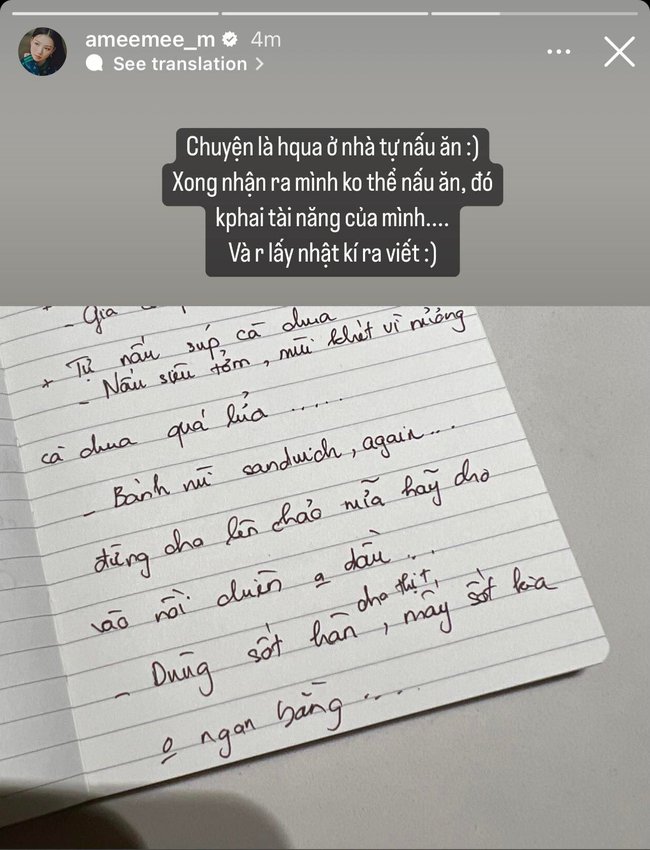 ameemee_m 4m
See translation
Chuyện là hqua ở nhà tự nấu ăn :)
Xong nhận ra mình ko thể nấu ăn, đó
kphai tài năng của mình....
Và r lấy nhật kí ra viết :)
- Gia
+ Tự nấu súp cà chua
- Nấu siêu tởm, mùi khét vì nướng
cà chua quá lửa .....
- Bánh mì sandwich, again...
đừng cho lên chảo nữa hãy cho
vào nồi chiên o dầu...
- Dùng sốt hàn cho thịt, mấy sốt kia
o ngan bằng ....